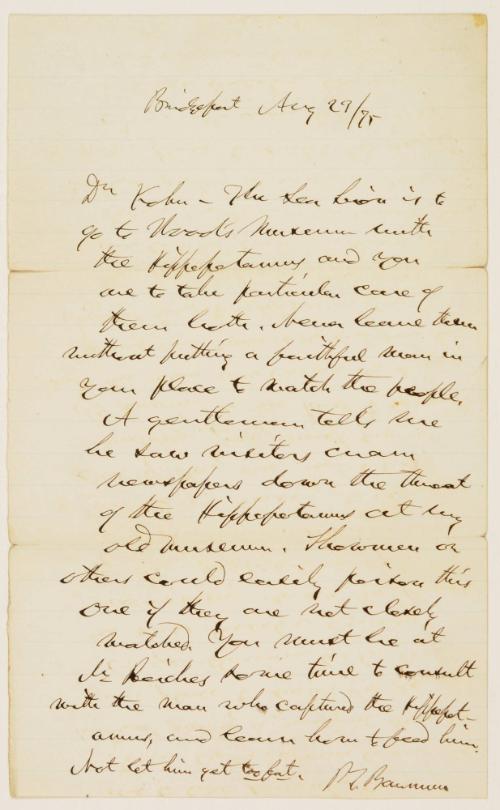 Bridgeport Aug 29/75
Dr Kohn – The Sea Lion is to
go to Woods Museum with
the Hippopotamus and you
are to take particular care of
them both. Never leave them
without putting a faithful man in
your place to watch the people.
A gentleman tells me
he saw visitors cram
newspapers down the throat
of the Hippopotamus at my
old museum. Showmen or
others could easily poison this
one if they are not closely
watched. You must be at
Reiches some time to consult
with the man who captured the Hippopot-
amus, and learn how to feed him.
Not let him get too fat. P. T. Barnum